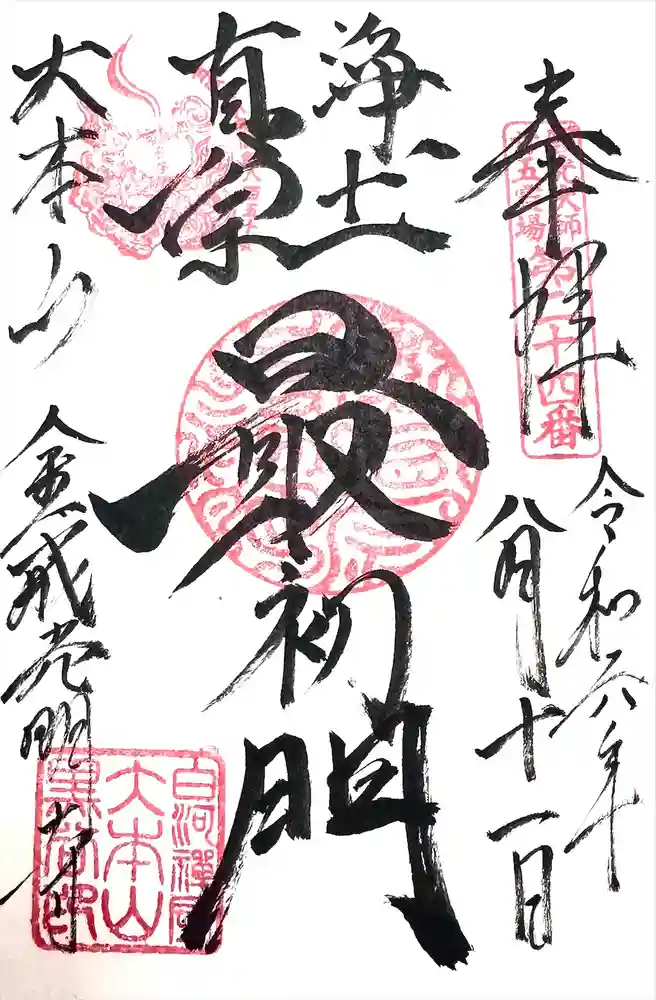 奉拝
令和六年
八月十一日
第二十四番
浄土
真宗
最初
門
大本山
金戒光明寺
白河禅房
大本山
黒谷印